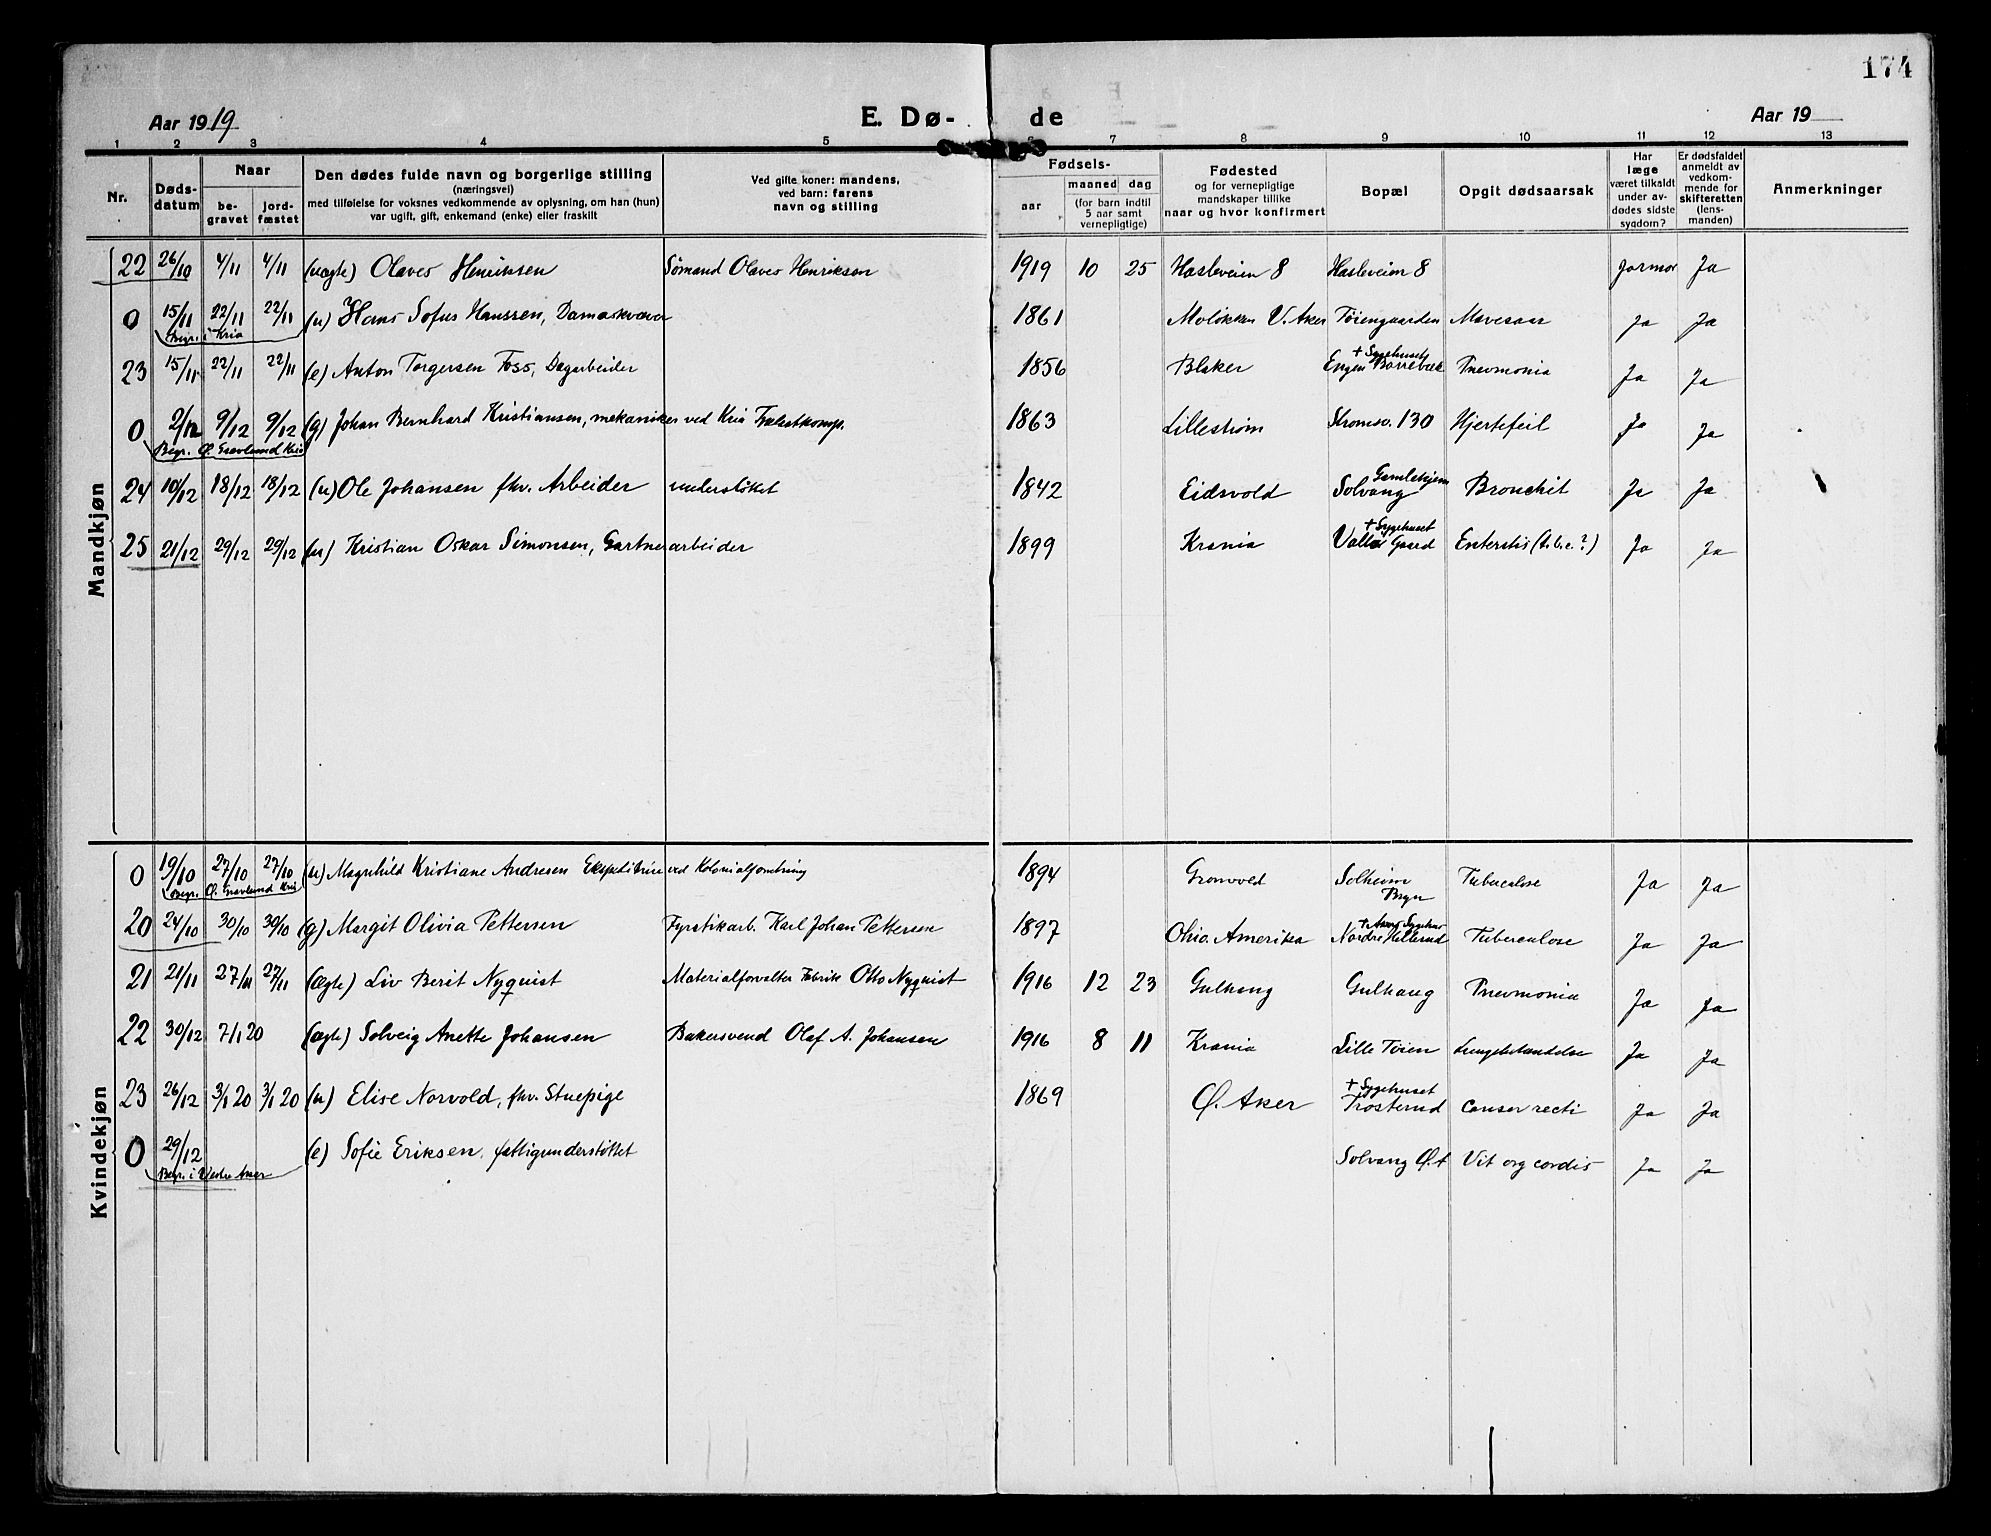 174
Aar 1919 E. Dø- de Aar 19
1 2 3 4 5 6 7 8 9 10 11 12 13
Nr. Døds-datum Naar begravet jordfæstet Den dødes fulde navn og borgerlige stilling (næringsvei) med tilføielse for voksnes vedkommende av oplysning, om han (hun) var ugift, gift, enkemand (enke) eller fraskilt Ved gifte koner: mandens, ved barn: farens navn og stilling Fødsels- aar maaned dag (for barn indtil 5 aar samt vernepligtige) Fødested og for vernepligtige mandskaper tillike naar og hvor konfirmert Bopæl Opgit dødsaarsak Har læge været tilkaldt under avdødes sidste sygdom? Er dødsfaldet anmeldt av vedkommende for skifteretten (lensmanden) Anmerkninger
Mandkjøn
22 26/10 4/11 4/11 (uægte) Olaves Henriksen Sømand Olaves Henriksen 1919 10 25 Hasleveien 8 Hasleveien 8 Jormor Ja
0 15/11 22/11 22/11 (u) Hans Sofus Hanssen, Damaskvæver 1861 V. Aker Tøiengaarden Mavesaar Ja Ja
Begr. i Kria
23 15/11 22/11 22/11 (e) Anton Torgersen Foss, Dagarbeider 1856 Blaker + Sygehuset Engen Borrebæk Pnevmonia Ja Ja
0 2/12 9/12 9/12 (g) Johan Bernhard Kristiansen, mekaniker ved Kria 1863 Lillestrøm Strømsv. 130 Hjertefeil Ja Ja
Begr. Ø. Gravlund Kria
24 10/12 18/12 18/12 (u) Ole Johansen fhv. Arbeider understøket 1842 Eidsvold Gamlehjem Solvang Bronchit Ja Ja
25 21/12 29/12 29/12 (u) Kristian Oskar Simonsen, Gartnerarbeider 1899 Krania + Sygehuset Valle Gaard (t.b.c.?) Ja Ja
Kvindekjøn
0 19/10 27/10 27/10 (u) Magnhild Kristiane Andresen Ekspeditrice ved Kolonialforretning 1894 Grønvold Solheim Bryn Tuberculose Ja Ja
Begr. Ø. Gravlund Kria
20 24/10 30/10 30/10 (g) Margit Olivia Pettersen Fyrstikarb. Karl Johan Pettersen 1897 Ohio Amerika Nordre Hellerud Tuberculose Ja Ja
21 21/11 27/11 27/11 (ægte) Liv Berit Nyquist Materialforvalter Fabrik Otto Nyquist 1916 12 23 Gulhaug Gulhaug Pnevmonia Ja Ja
22 30/12 7/1 20 (ægte) Solveig Anette Johansen Bakersvend Olaf A. Johansen 1916 8 11 Krania Lille Tøien Lungebetændelse Ja Ja
23 26/12 3/1 20 3/1 20 (u) Elise Norvold, fhv. Stuepige 1869 Ø. Aker + Sygehuset Trosterud cancer recti Ja Ja
0 29/12 (e) Sofie Eriksen, fattigunderstøttet Solvang Ø. A Vit org cordis Ja Ja
Begr. i Vestre Aker